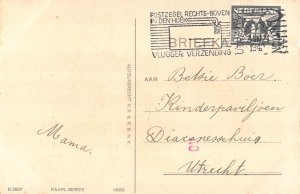 POSTZEGEL RECHTS-BOVEN
IN DEN HOEK
BRIEFKAART
VLUGGER VERZENDING
NEDERLAND
AUTEURSRECHT V.R. & R.B.N.V.
AAN
Betsie Boer.
Kinderpaviljoen
Diaconessenhuis
Utrecht.
Mama.
K 5507
PAREL-SERIES